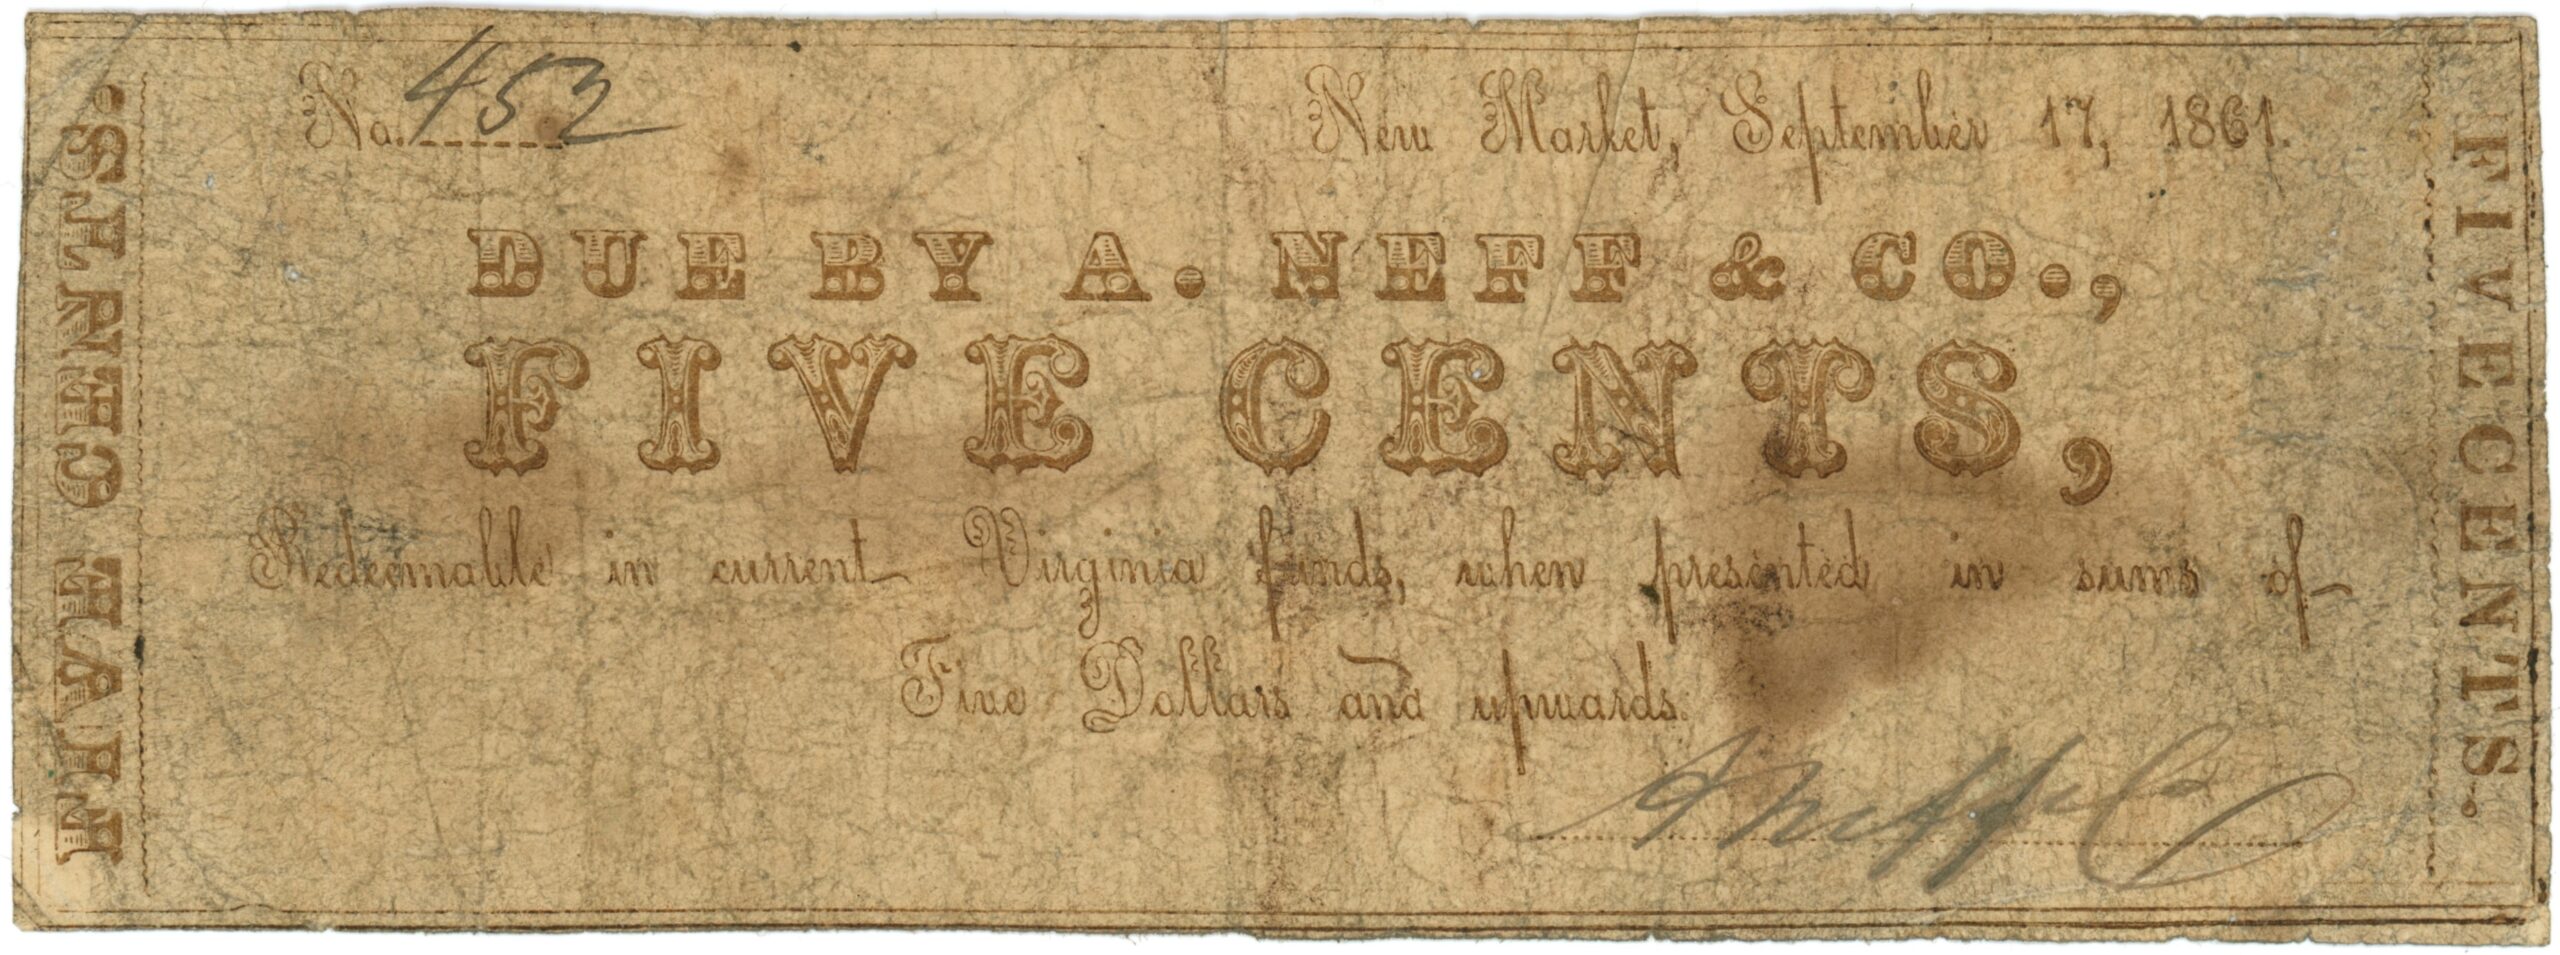 FIVE CENTS.
No. 452
New Market, September 17, 1861.
DUE BY A. NEFF & CO.,
FIVE CENTS,
Redeemable in current Virginia funds, when presented in sums of
Five Dollars and upwards.
A Neff & Co
FIVE CENTS.